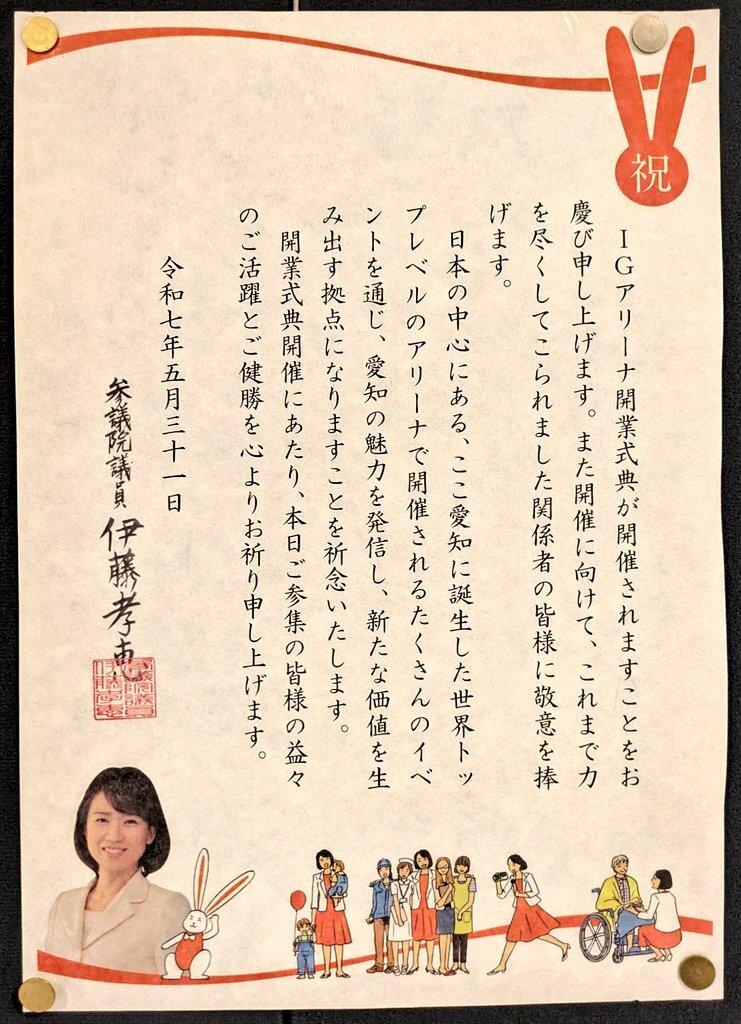 祝
ＩＧアリーナ開業式典が開催されますことをお
慶び申し上げます。また開催に向けて、これまで力
を尽くしてこられました関係者の皆様に敬意を捧
げます。
日本の中心にある、ここ愛知に誕生した世界トッ
プレベルのアリーナで開催されるたくさんのイベ
ントを通じ、愛知の魅力を発信し、新たな価値を生
み出す拠点になりますことを祈念いたします。
開業式典開催にあたり、本日ご参集の皆様の益々
のご活躍とご健勝を心よりお祈り申し上げます。
令和七年五月三十一日
参議院議員 伊藤孝恵
参議院議員
伊藤孝恵